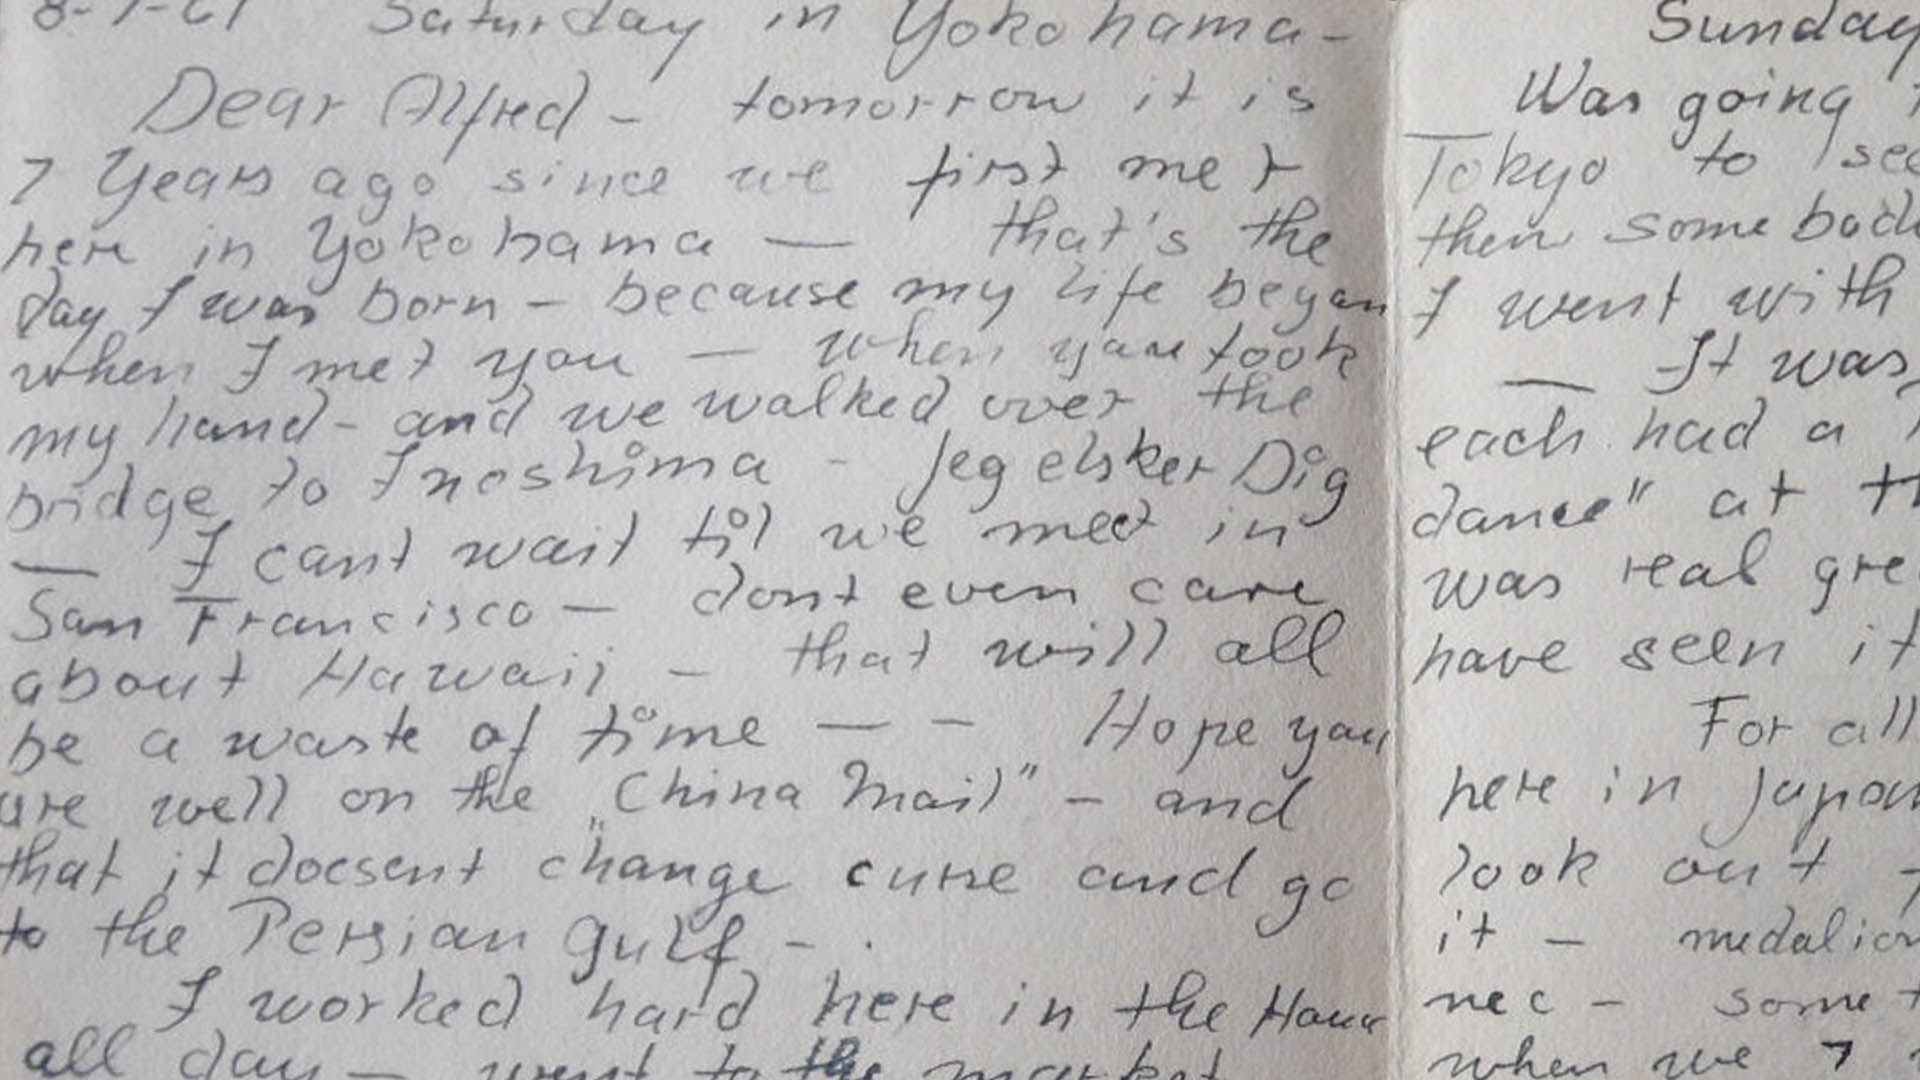 8-7-61 Saturday in Yokohama-
Dear Alfred - tomorrow it is
7 Years ago since we first met
here in Yokohama — that's the
day I was born - because my life began
when I met you — when you took
my hand - and we walked over the
bridge to Inoshima - Jeg elsker Dig
— I cant wait til we meet in
San Francisco — dont even care
about Hawaii - that will all
be a waste of time — - Hope you
are well on the "China Mail" - and
that it doesent change curse and go
to the Persian Gulf - .
I worked hard here in the House
all day — went to the market
Sunday
Was going
Tokyo to see
then some bod
I went with
— It was
each had a
dance" at th
was real gre
have seen it
For all
here in Japan
look out
it — medalion
nec - some t
when we